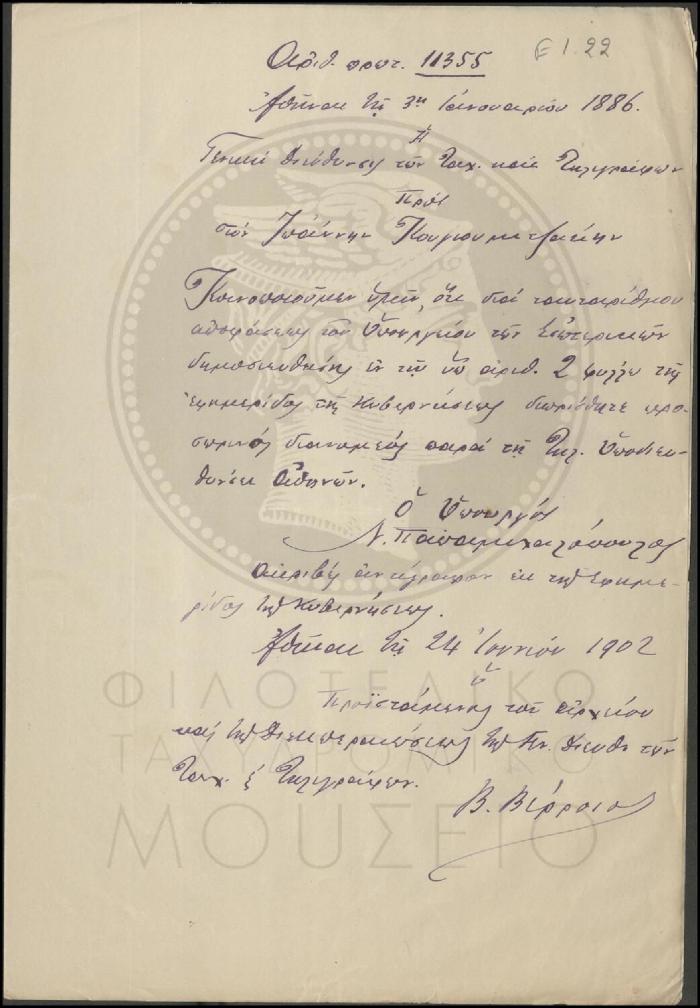 Ε 1.22
Αριθ. πρωτ. 11355
Ἀθῆναι τῇ 3ῃ Ἰανουαρίου 1886.
Ἡ
Γενική Διεύθυνσις τῶν Ταχ. καί Τηλεγράφων
Πρός
τόν Ἰωάννην Κουγιουμτζάκην
Κοινοποιοῦμεν ὑμῖν, ὅτι διά ταυταρίθμου
ἀποφάσεως τοῦ Ὑπουργείου τῶν Ἐσωτερικῶν
δημοσιευθείσης ἐν τῷ ὑπ' ἀριθ. 2 φύλλῳ τῆς
Ἐφημερίδος τῆς Κυβερνήσεως διωρίσθητε προ-
σωρινός διανομεύς παρά τῇ Τηλ. Ὑποδιευ-
θύνσει Ἀθηνῶν.
Ὁ Ὑπουργός
Ν. Παπαμιχαλόπουλος
Ἀκριβές ἀντίγραφον ἐκ τῆς Ἐφημε-
ρίδος τῆς Κυβερνήσεως.
Ἀθῆναι τῇ 24 Ἰουνίου 1902
ὁ
Προϊστάμενος τοῦ ἀρχείου
καί τῆς διεκπεραιώσεως τῆς Γεν. Διευθ. τῶν
Ταχ. & Τηλεγράφων.
Β.
ΦΙΛΟΤΕΛΙΚΟ
ΤΑΧΥΔΡΟΜΙΚΟ
ΜΟΥΣΕΙΟ